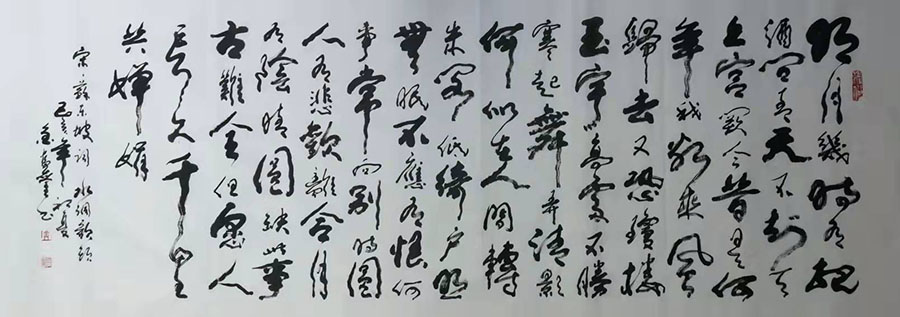 明月幾時有把
酒問青天不知天
上宮闕今昔是何
年我欲乘風
歸去又恐瓊樓
玉宇高處不勝
寒起舞弄清影
何似在人間轉
朱閣低綺戶照
無眠不應有恨何
事常向別時圓
人有悲歡離合月
有陰晴圓缺此事
古難全但願人
長久千里
共嬋娟
宋蘇東坡詞水調歌頭
己亥年初夏